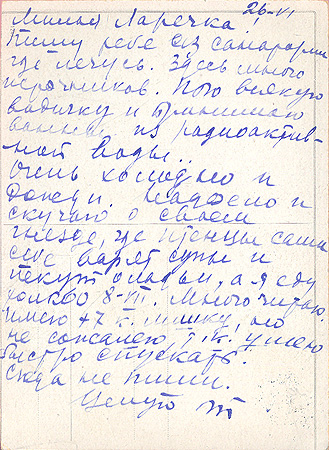 26-VI
Милая Ларечка.
Пишу тебе из санатория
где лечусь. Здесь много
источников. Пью всякую
водичку и принимаю
ванны из радиоактив-
ной воды..
Очень холодно и
дожди. Надоело и
скучаю о своем
гнезде, где птенцы сами
себе варят супы и
пекут оладьи, а я еду
только 8-VII. Много читаю.
Имею +7 к. лишку, но
не сожалею, т.к. умею
быстро спускать.
Сюда не пиши.
Целую